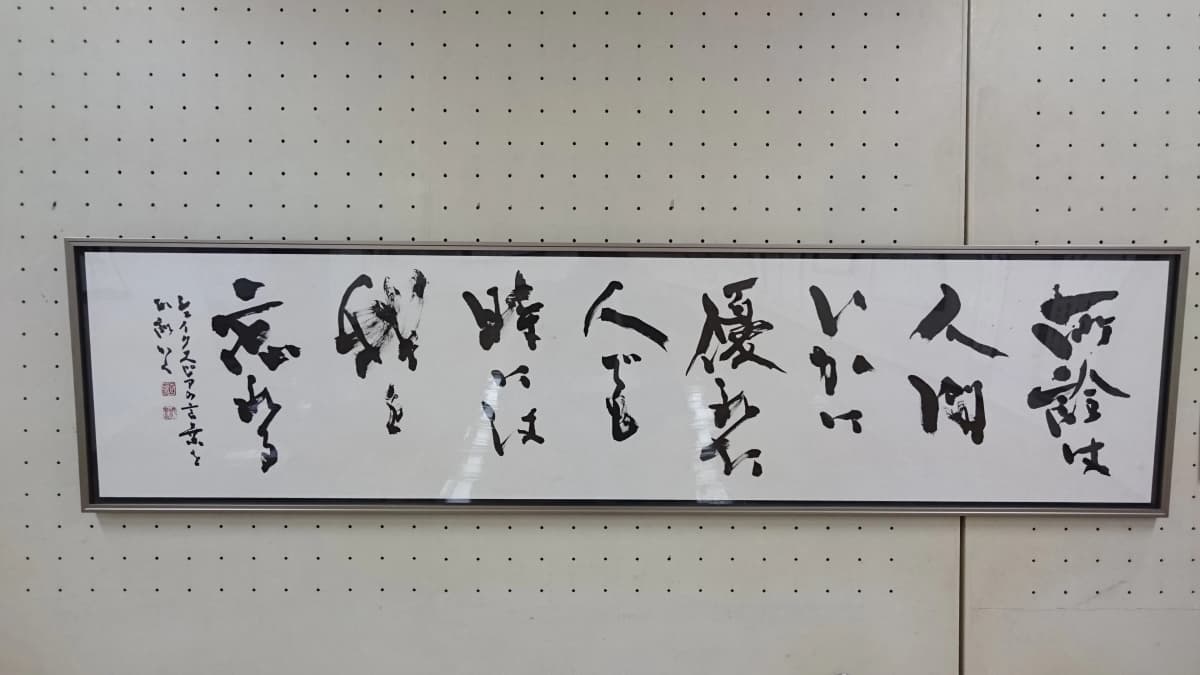 所詮は
人間
いかに
優れた
人でも
時には
我を
忘れる
シェイクスピアの言葉を